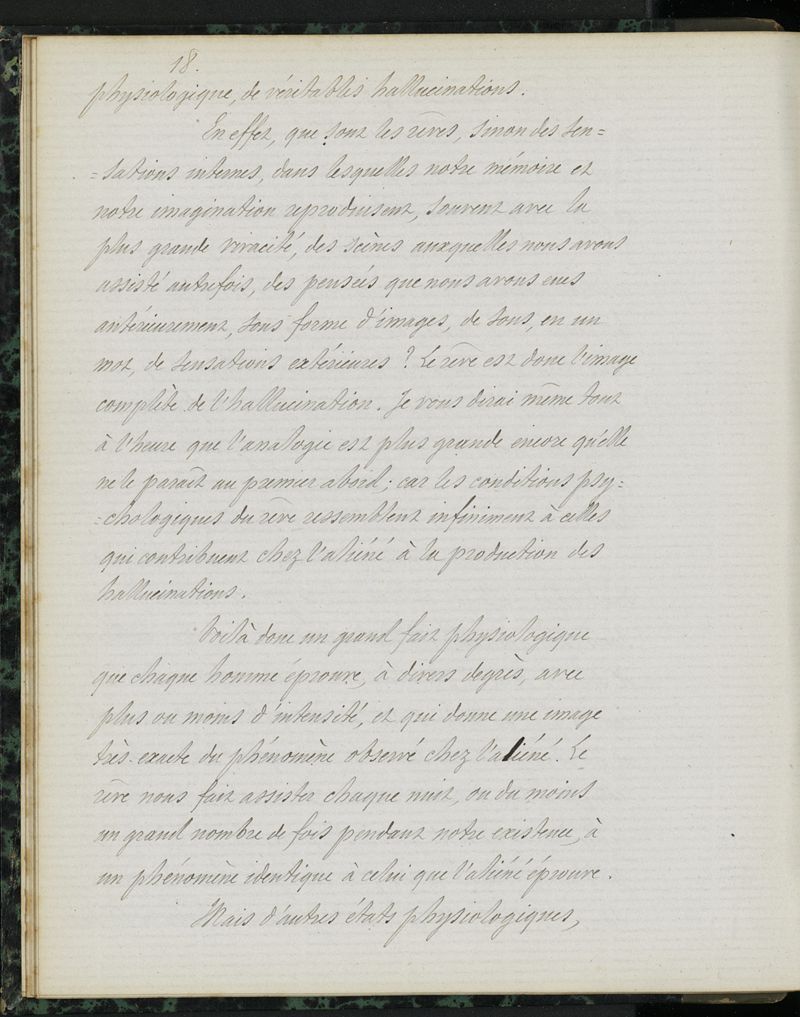 18.
physiologique, de véritables hallucinations.
En effet, que sont les rêves, sinon des sen=
=sations internes, dans lesquelles notre mémoire et
notre imagination reproduisent, souvent avec la
plus grande vivacité, des scènes auxquelles nous avons
assisté autrefois, des pensées que nous avons eues
antérieurement, sous forme d'images, de sons, en un
mot, de sensations extérieures ? Le rêve est donc l'image
complète de l'hallucination. Je vous dirai même tout
à l'heure que l'analogie est plus grande encore qu'elle
ne le paraît au premier abord ; car les conditions psy=
=chologiques du rêve ressemblent infiniment à celles
qui contribuent chez l'aliéné à la production des
hallucinations.
Voilà donc un grand fait physiologique
que chaque homme éprouve, à divers degrès, avec
plus ou moins d'intensité, et qui donne une image
très-exacte du phénomène observé chez l'aliéné. Le
rêve nous fait assister chaque nuit, ou du moins
un grand nombre de fois pendant notre existence, à
un phénomène identique à celui que l'aliéné éprouve.
Mais d'autres états physiologiques,